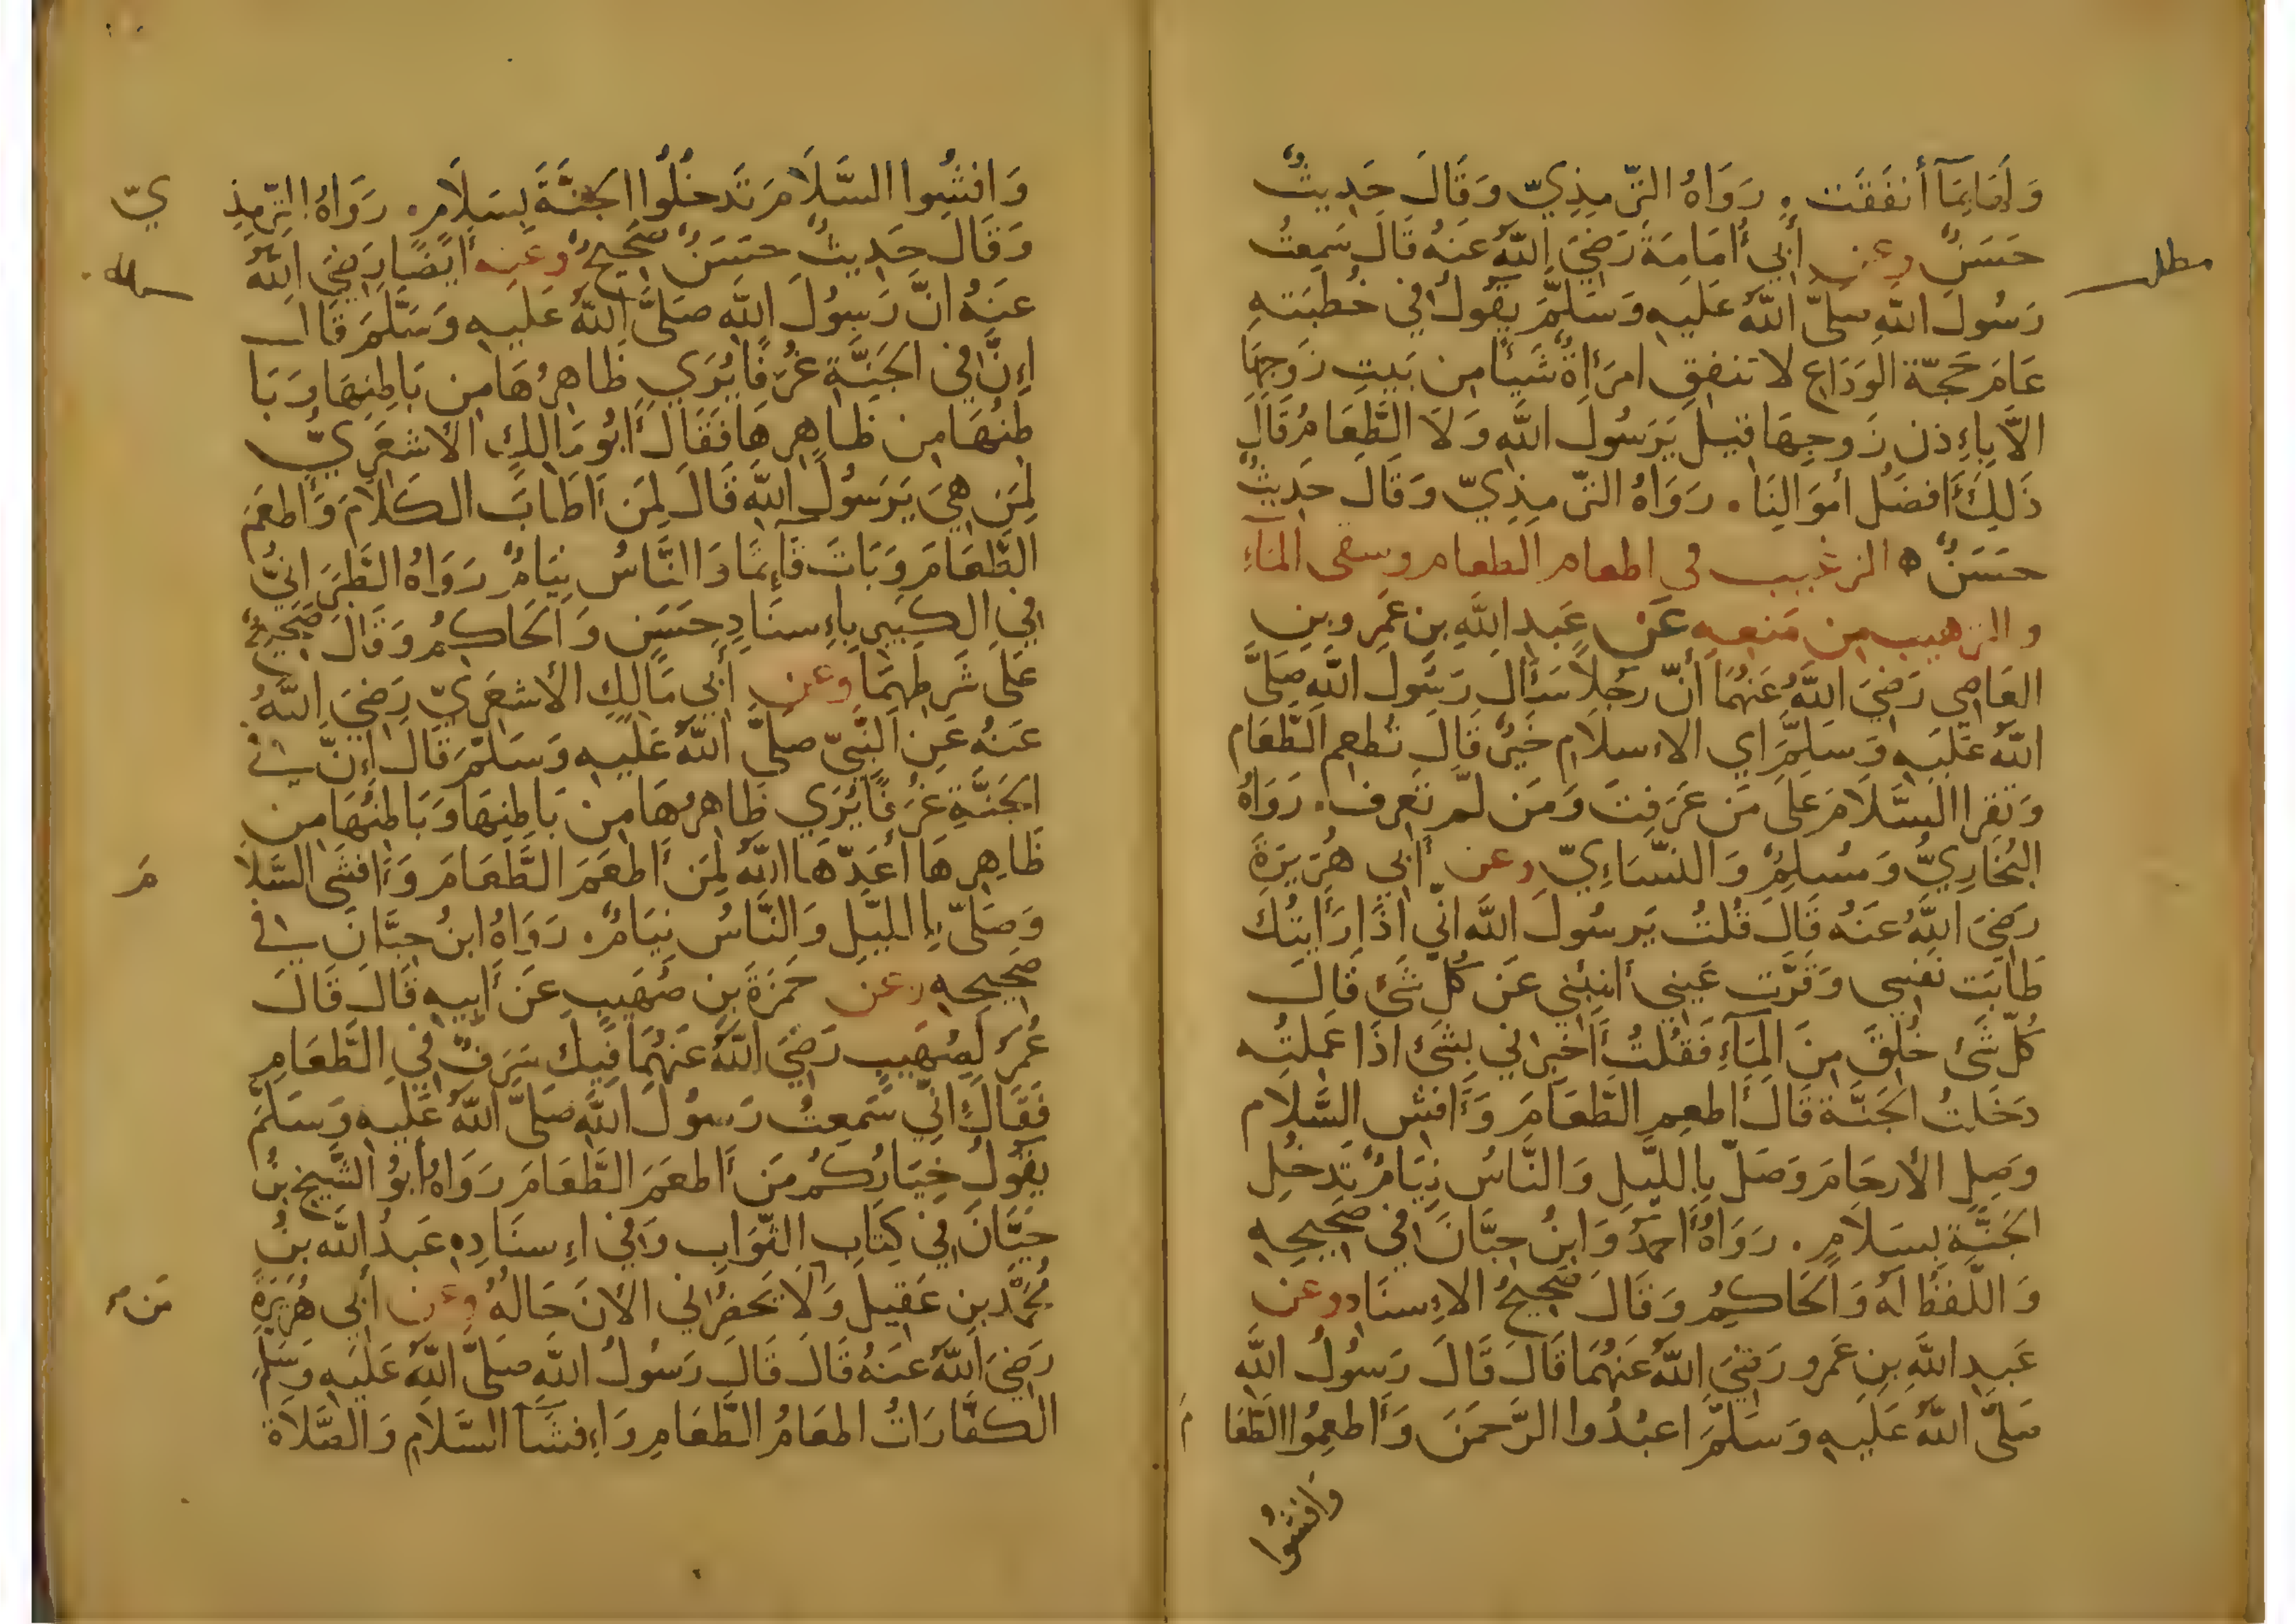 وَلَهَا بِمَا أَنفَقَت . رَوَاهُ التِّرمِذِيّ وَقَالَ حَدِيثٌ
حَسَنٌ وعن أَبِي أُمَامَةَ رَضِيَ اللَّهُ عَنهُ قَالَ سَمِعتُ
مطلب
رَسُولَ اللَّهِ صَلَّى اللَّهُ عَلَيهِ وَسَلَّمَ يَقُولُ فِي خُطبَتِهِ
عَامَ حَجّة الوَدَاعِ لا تنفق امرَأَةٌ شَيأً مِن بَيتِ زَوجِهَا
الَّا بِاءِذنِ زَوجِهَا قيلَ يَرَسُولَ اللَّه وَلَا الطَّعَامُ قَالَ
ذَلِكَ أَفضَلُ أَموَالِنَا . رَوَاهُ التّرمِذِيّ وَقَالَ حَدِيثٌ
حَسَنٌ ه الترغيب فى اطعام الطعام وسقى المَآءِ
والترهيب من مَنعِهِ عَن عَبدِ اللَّهِ بنِ عَمرِو بنِ
العَاصِي رَضِيَ اللَّهُ عَنهُمَا أَنّ رَجُلاً سَأَلَ رَسُولَ اللَّهِ صَلَّى
اللَّهُ عَلَيهِ وَسَلَّمَ أَي الاءسلَامِ خَيرٌ قَالَ تُطعِم الطَّعَام
وَتَقرا السَّلَامَ عَلَى مَن عَرَفتَ وَمَن لَم تَعرِف . رَوَاهُ
البُخَارِيُّ وَمُسلِمٌ وَالنَّسَاءِيّ وعن أَبِي هُرَيرَةَ
رَضِيَ اللَّهُ عَنهُ قَالَ قُلتُ يَرسُولَ اللَّه انّي اذَا رَأَيتُك
طَابَت نَفسِي وَقَرَّت عَينِي أَنبِئنِي عَن كُلّ شَئ قَالَ
كُلّ شَئ خُلِقَ مِنَ المَآءِ فَقُلتُ أَخبِرنِي بِشَئ اذَا عَمِلتُه
دَخَلتُ الجَنَّة قَالَ أَطعِمِ الطَّعَامَ وَأَفشِ السَّلَام
وَصِلِ الأَرحَامَ وَصَلّ بِالليلِ وَالنَّاسُ نِيَامٌ تَدخُلِ
الجَنَّة بِسَلَامٍ . رَوَاهُ أَحمَدُ وَابنُ حِبَّانَ فِي صَحِيحِهِ
وَاللَّفظُ لَهُ وَالحَاكِمُ وَقَالَ صَحِيحُ الاءِسنَادِ وعن
عَبدِ اللَّهِ بنِ عَمرو رَضِيَ اللَّهُ عَنهُمَا قَالَ قَالَ رَسُولُ اللَّه
صَلَّى اللَّهُ عَلَيهِ وَسَلَّمَ اعبُدُوا الرَّحمَنَ وَأَطعِمُوا الطَّعَا مَ
وَافشُوا
وَافشُوا السَّلَامَ تَدخُلُوا الجَنَّةَ بِسَلَامٍ . رَوَاهُ التّرمِذِ يّ
وَقَالَ حَدِيثٌ حَسَنٌ صَحِيحٌ وعنه أَيضًا رَضِيَ اللَّهُ
عَنهُ انَّ رَسُولَ اللَّه صَلَّى اللَّهُ عَلَيهِ وَسَلَّمَ قَالَ
اءِنَّ فِي الجَنَّةِ غُرَفًا يُرَي ظَاهِرُهَا مِن بَاطِنِهَا وَبَا
طِنُهَا مِن ظَاهِرِهَا فَقَالَ أَبُو مَالِكٍ الأَشعَرِيّ
لِمَن هِيَ يَرَسُولَ اللَّهِ قَالَ لِمَن أَطَابَ الكَلَامَ وَأَطعَمَ
الطَّعَامَ وَبَاتَ قَآئِمًا وَالنَّاسُ نِيَامٌ رَوَاهُ الطَّبَرَانِيُّ
فِي الكَبِيرِ بِاءِسنَادٍ حَسَنٍ وَالحَاكِمُ وَقَالَ صَحِيحٌ
عَلَى شَرطِهِمَا وعن أَبِي مَالِكٍ الأَشعَرِيّ رَضِيَ اللَّهُ
عَنهُ عَنِ النَّبِيّ صَلَّى اللَّهُ عَلَيهِ وَسَلَّمَ قَالَ اءِنَّ فِي
الجَنَّةِ غُرَفًا يُرَي ظَاهِرُهَا مِن بَاطِنِهَا وَبَاطِنُهَا مِن
ظَاهِرِهَا أَعَدّهَا اللَّهُ لِمَن أَطعَمَ الطَّعَامَ وَأَفشَى السَّلَا مَ
وَصَلّى بِاالليلِ وَالنَّاسُ نِيَامٌ . رَوَاهُ ابنُ حِبَّانَ فِي
صَحِيحِهِ وعن حَمزَةَ بنِ صُهَيبٍ عَن أَبِيهِ قَالَ قَالَ
عُمَرُ لِصُهَيبٍ رَضِيَ اللَّهُ عَنهُمَا فِيكَ سَرَفٌ فِي الطَّعَامِ
فَقَالَ انّي سَمِعتُ رَسُولَ اللَّهِ صَلَّى اللَّهُ عَلَيهِ وَسَلَّمَ
يَقُولُ خِيَارُكُم مَن أَطعَمَ الطَّعَامَ رَوَاهُ أَبُو الشَّيخ بنُ
حَيَّانَ فِي كِتَابِ الثَّوَابِ وَفِي اءِسنَادِهِ عَبدُ اللَّه بنُ
مُحَمَّدِ بنِ عَقِيلٍ وَلَا يَحضُرُانِي الأنَ حَالُهُ وعن أَبِي هُرَيرَةَ
رَضِيَ اللَّهُ عَنهُ قَالَ قَالَ رَسُولُ اللَّهِ صَلَّى اللَّهُ عَلَيهِ وَسَلَّمَ
الكَفَّارَاتُ اطعَامُ الطَّعَامِ وَاءِفشَآ السَّلَامِ وَالصَّلَاة